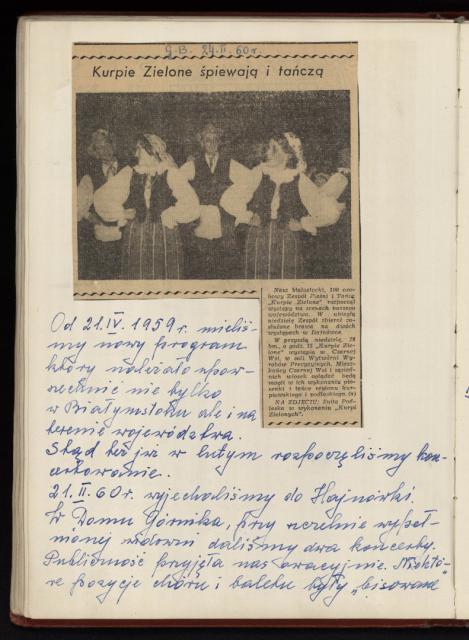 G.B. 24.II.60r.
Kurpie Zielone śpiewają i tańczą
Nasz białostocki, 100 oso-
bowy Zespół Pieśni i Tańca
„Kurpie Zielone" rozpoczął
występy na scenach naszego
województwa. W ubiegłą
niedzielę Zespół zbierał za-
służone brawa na dwóch
występach w
W przyszłą niedzielę, 28
bm., o godz. 15 „Kurpie Zie-
lone" wystąpią w Czarnej
Wsi, w sali Wytwórni Wy-
robów Precyzyjnych. Miesz-
kańcy Czarnej Wsi i sąsied-
nich wiosek oglądać będą
mogli w ich wykonaniu pio-
senki i tańce regionu kur-
piowskiego i podlaskiego.
NA ZDJĘCIU: Suita Pod-
laska w wykonaniu „Kurpi
Zielonych".
Od 21.IV.1959r. mieliś-
my nowy program
który należało upow-
szechnić nie tylko
w Białymstoku ale i na
terenie województwa.
Stąd też już w lutym rozpoczęliśmy kon-
certowanie.
21.II.60r. wyjechaliśmy do Hajnówki.
W Domu Górnika, przy szczelnie wypeł-
nionej widowni daliśmy dwa koncerty.
Publiczność przyjęła nas owacyjnie. Niektó-
re pozycje chóru i baletu były „bisowane